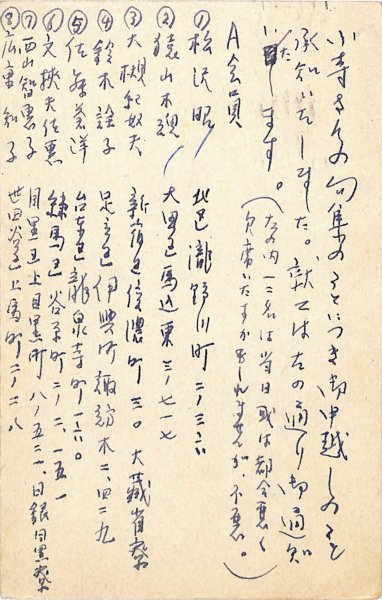 小寺さんの句集のことにつき御申越しのこと
承知いたしました。就ては左の通り御通知
いたします。
(左の内一二名は当日或は都合悪く
欠席いたすかもしれませんが、不悪。)
A会員
①松沢昭 北区瀧野川町二ノ三六
②猿山木魂 大田区馬込東三ノ七一七
③大槻紀奴夫 新宿区信濃町三〇 大蔵省寮
④鈴木詮子 足立区伊興町諏訪木二、四二九
⑤佐 蒼洋 台東区龍泉寺町一六〇
⑥又挾夫佐恵 練馬区谷原町二ノ一、五一
⑦西山智恵子 目黒区上目黒町八ノ五二一、日銀目黒寮
⑧ 知子 世田谷区上馬町二ノ二八